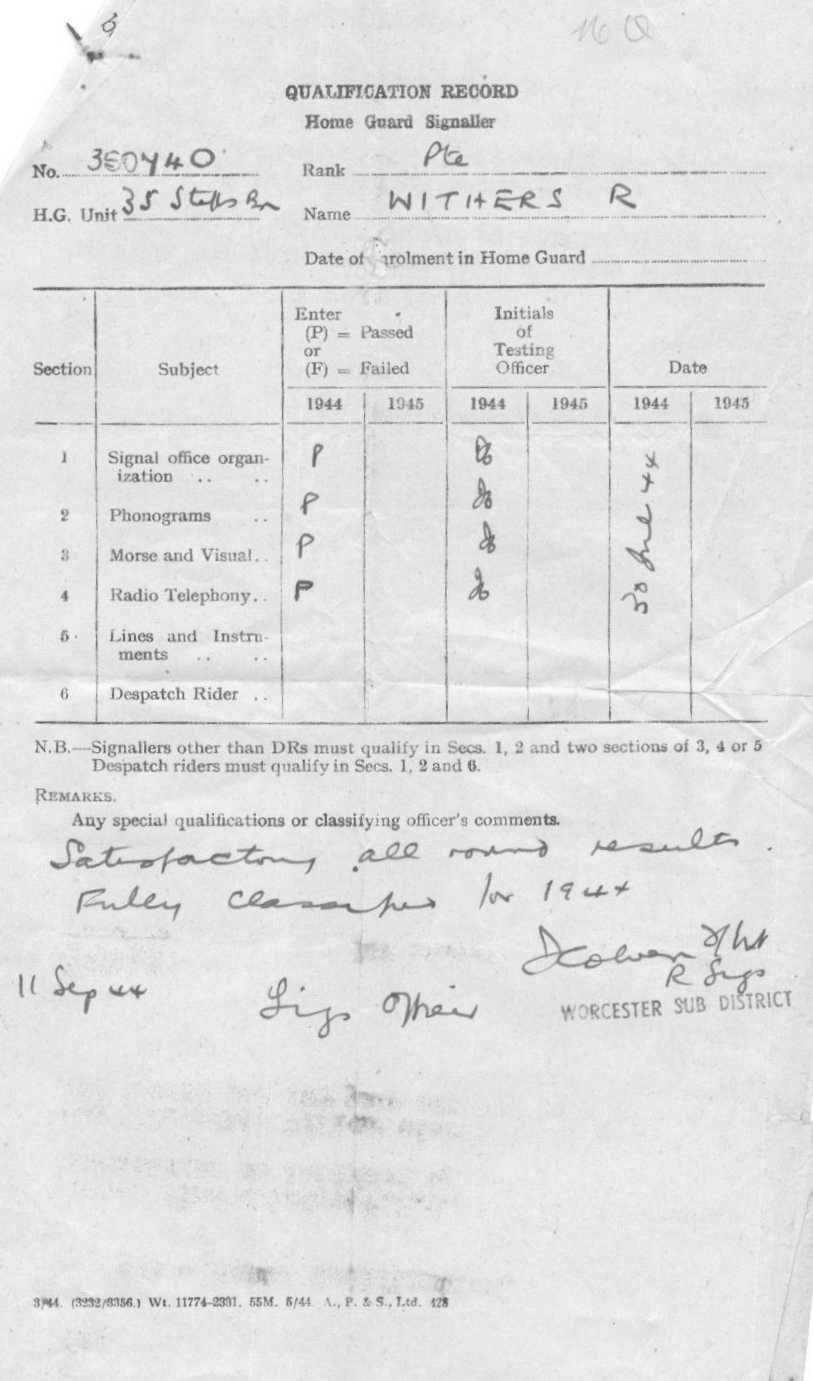 QUALIFICATION RECORD
Home Guard Signaller
No. 380440 Rank Pte
H.G. Unit 35 Staffs Bn Name WITHERS R
Date of Enrolment in Home Guard
Section Subject Enter (P) = Passed or (F) = Failed Initials of Testing Officer Date
1944 1945 1944 1945 1944 1945
1 Signal office organ- P
ization .. ..
2 Phonograms .. P
3 Morse and Visual.. P
4 Radio Telephony.. P
30 June 44
5 Lines and Instru-
ments .. ..
6 Despatch Rider ..
N.B.—Signallers other than DRs must qualify in Secs. 1, 2 and two sections of 3, 4 or 5
Despatch riders must qualify in Secs. 1, 2 and 6.
REMARKS.
Any special qualifications or classifying officer's comments.
Satisfactory all round results.
Fully classified for 1944
R Sigs
11 Sep 44 Sigs Officer
WORCESTER SUB DISTRICT
3/44. (3232/8356.) Wt. 11774-2391. 55M. 5/44 A., P. & S., Ltd. 428